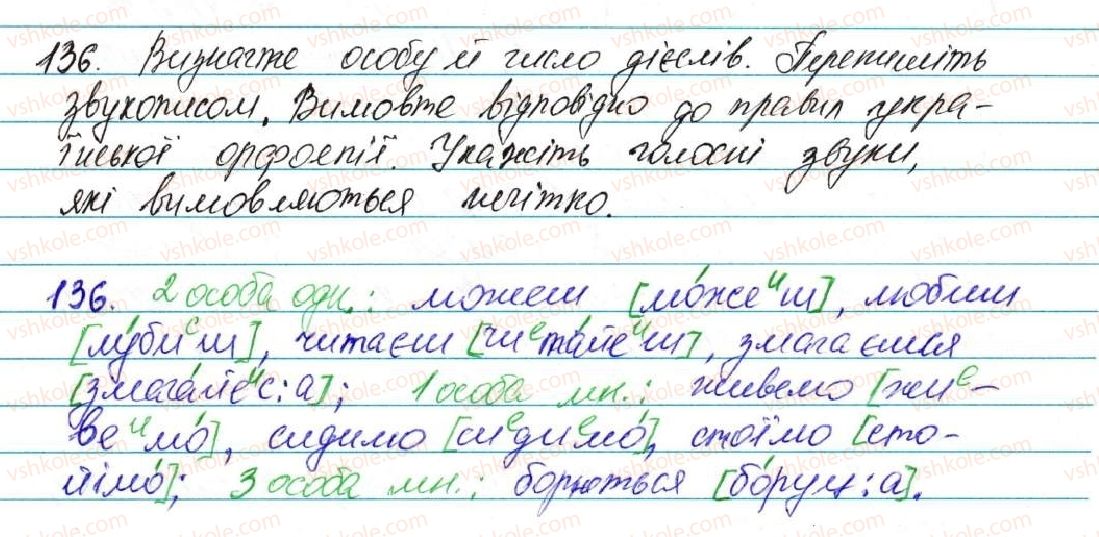 136. Визначте особу й число дієслів. Перепишіть
звукописом. Вимовте відповідно до правил укра-
їнської орфоепії. Укажіть голосні звуки,
які вимовляються нечітко.
136. 2 особа одн.: можеш [мо́жеиш], любиш
[лу́биеш], читаєш [чиета́йеиш], змагаєшся
[змага́йеис:а]; 1 особа мн.: живемо [жие-
веимо́], сидимо [сиедиемо́], стоїмо [сто-
йімо́]; 3 особа мн.: борються [бо́руц:а].